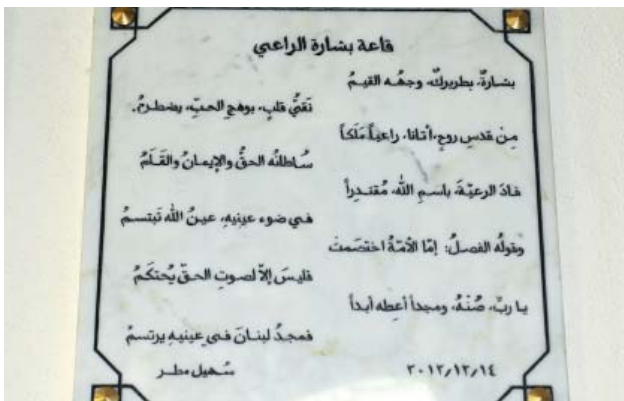 قاعة بشارة الراعي
بشارةٌ، بطريركٌ، وجهُه القيمُ
نَقيُّ قلبٍ، بوهجِ الحبِّ، يضطرمُ.
مِن قدسِ روحٍ، أتانا، راعياً مَلَكاً
سُلطانُه الحقُّ والإيمانُ والقَلَمُ
قادَ الرعيّةَ، باسمِ الله، مُقتدِراً
في ضوءِ عينيهِ، عينُ الله تَبتسمُ
وقولُه الفصلُ: إمّا الأمّةُ اختصَمتْ
فليسَ إلاّ لصوتِ الحقّ يُحتكَمُ
يا ربُّ، صُنْهُ، ومجداً أعطِه أبداً
فمجدُ لبنانَ في عينيهِ يرتسمُ
٢٠١٢/١٢/١٤
سُهيل مطر